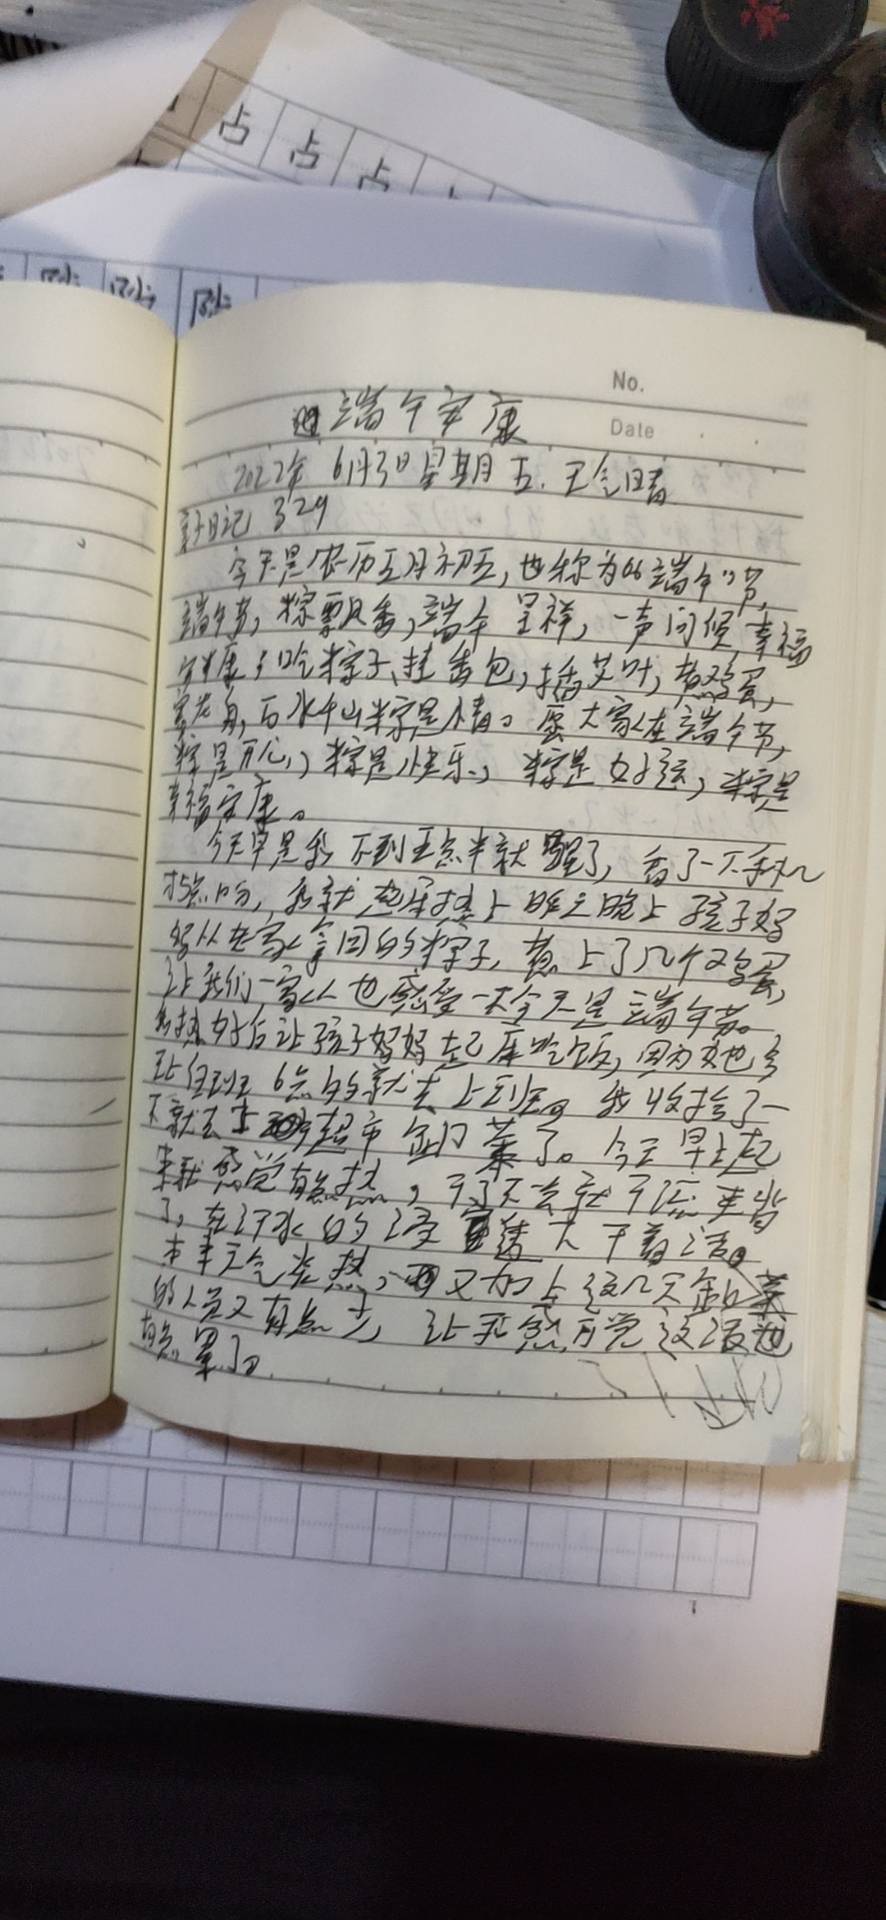 占 占 占
No.
端午安康
Date
2022年 6月3日 星期五. 天气晴
亲子日记 329
今天是农历五月初五,也称为"端午"节,
端午节,粽飘香,端午呈祥,一声问候,幸福
安康;吃粽子、挂香包,插艾叶,煮鸡蛋,
万水千山粽是情。愿大家在端午节,
粽是开心,粽是快乐,粽是好运,粽是
幸福安康。
今天早晨我不到五点半就醒了,看了一下手机
才5点吗,我就起床热上昨天晚上孩子妈
妈从老家拿回的粽子,煮上了几个鸡蛋,
让我们一家人也感受一下今天是端午节。
我热好后让孩子妈妈起床吃饭,因为她今
6点的就去上班。我收拾了一
下就去超市卸菜了。今天早上起
来就感觉有点热,干了不会就汗流夹背
了,在汗水的浸下干着活。
本来天气炎热,又加上这几天卸菜
的人员又有点少,让我感觉这活也
有点累了。